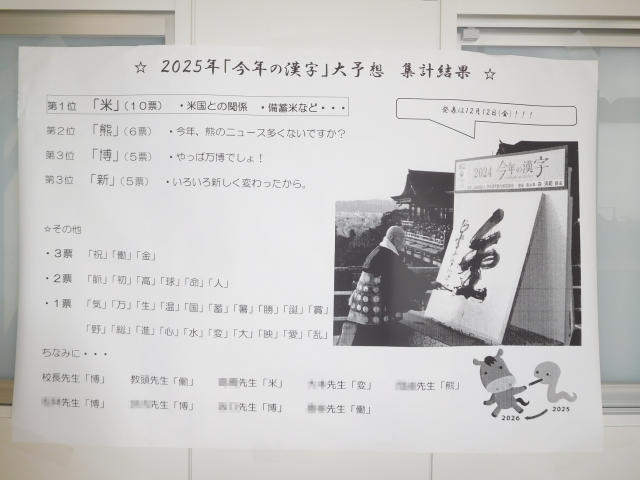 ☆ 2025年「今年の漢字」大予想 集計結果 ☆
第1位 「米」(10票) ・米国との関係 ・備蓄米など・・・
第2位 「熊」(6票) ・今年、熊のニュース多くないですか？
第3位 「博」(5票) ・やっぱ万博でしょ！
第3位 「新」(5票) ・いろいろ新しく変わったから。
発表は12月12日(金)！！！
2024 今年の漢字
金
☆その他
・3票 「祝」「働」「金」
・2票 「脈」「初」「高」「球」「命」「人」
・1票 「気」「万」「生」「温」「国」「蓄」「暑」「勝」「誕」「賞」
「野」「総」「進」「心」「水」「変」「大」「映」「愛」「乱」
ちなみに・・・
校長先生「博」 教頭先生「働」 先生「米」 先生「変」 先生「熊」
先生「博」 先生「博」 先生「博」 先生「働」
2025
2026